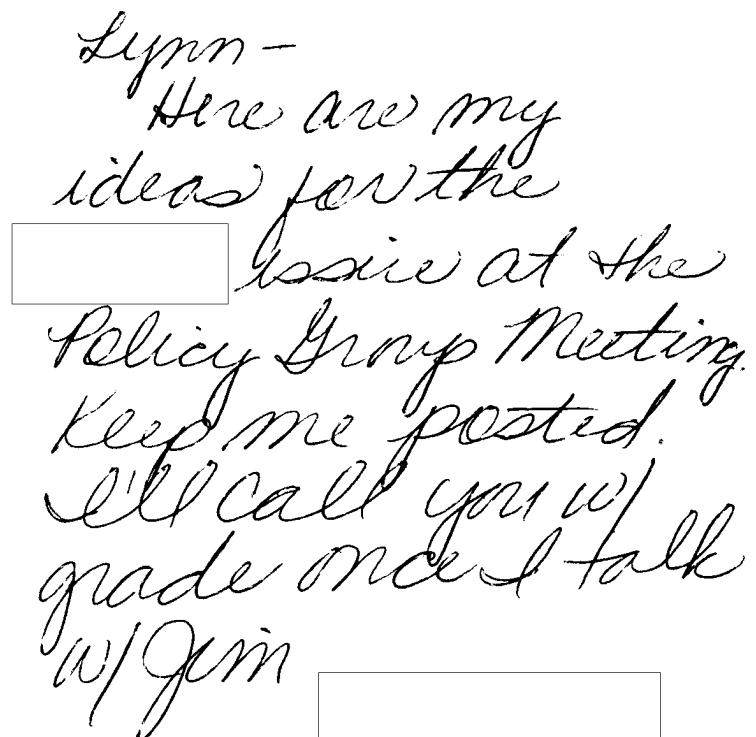 Lynn-
Here are my
ideas for the
issue at the
Policy Group Meeting.
Keep me posted.
I'll call you w/
grade once I talk
w/ Jim